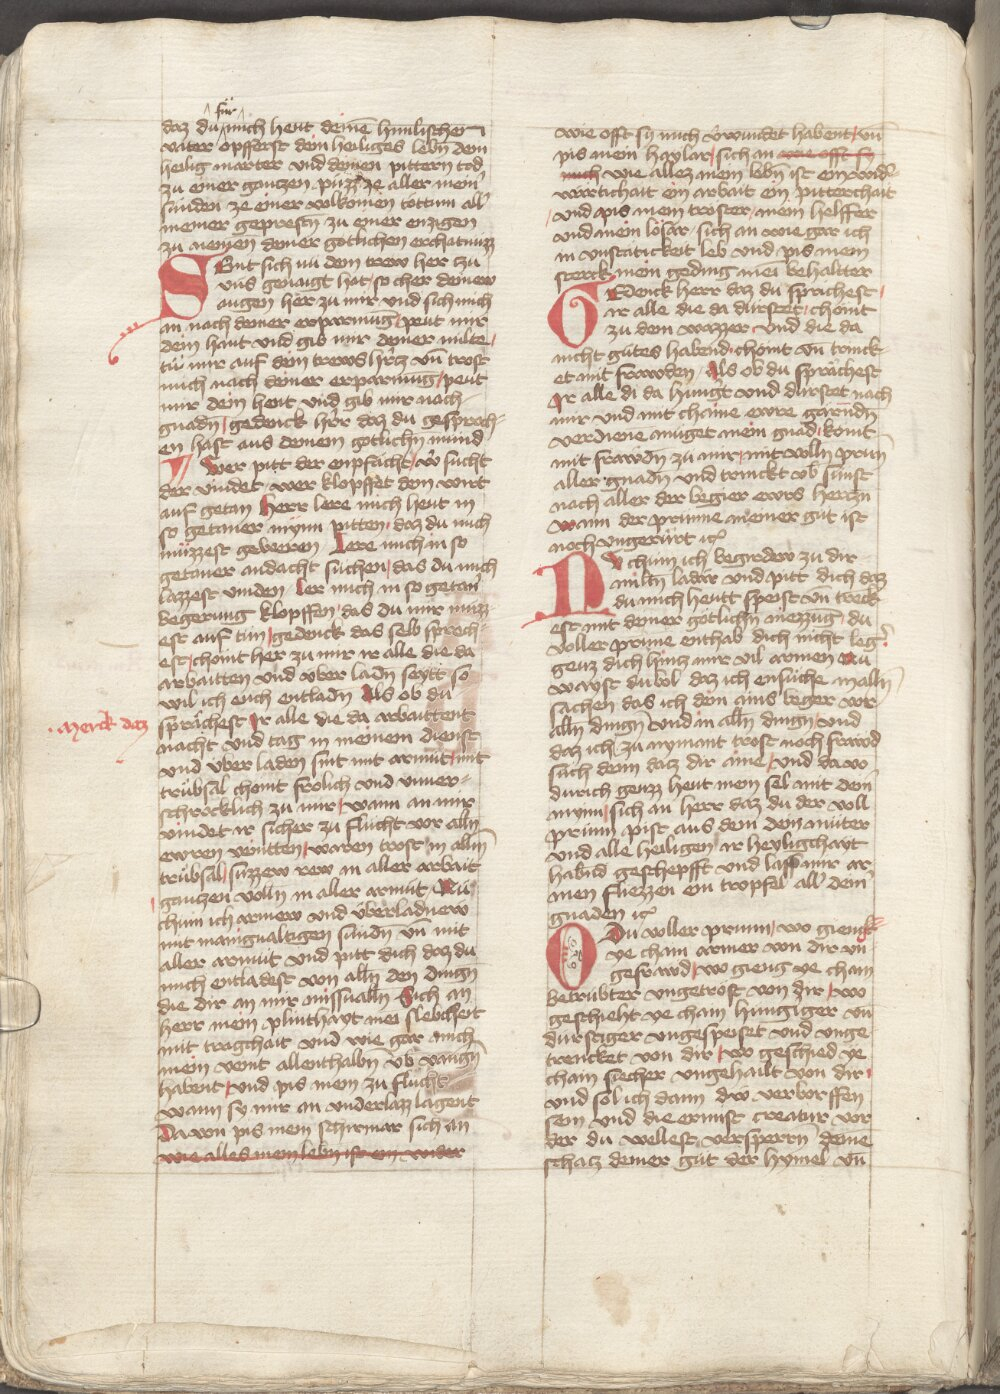 für
daz du mich heut deinē himlischen
vater opfferst dein heiliges lebn dein
heilig marter vnd deinen pittern tod
zu einer ganczen půzz ze aller mein̄
sünden ze einer volkomen tottum all
meiner geprestn zu einer enzigen
zu nemen deiner gotlichen erchatnüzz
Seint sich nu dem trew her czu
vns genaigt hat so cher deinew
augen her zu mir vnd sich mich
an nach deiner erparmūg peut mir
dein hant vnd gib mir deiner milte
tü mir auf dein trews hercz vn̄ trost
mich nach deiner erparmūg peut
mir dein hent vnd gib mir nach
gnadn gedenck herr daz du gesproch-
en hast aus deinem gotlichn mund
Wer pitt der enpfacht wer sucht
der vindet wer klopffet dem wirt
auf getan herr lere mich heut in
so getaner mynn pitten daz du mich
müzzest geweren Lere mich in so
getaner andacht süchen das du mich
lazzest vinden ler mich in so getan̄
begerung klopffen das du mir müzz-
est auf tün gedenck das selb sprech-
est choint her zu mir ir alle die da
arbaitten vnd über ladn seytt so
wil ich euch entladn Als ob du
sprächest Ir alle die da arbaittent
nacht vnd tag in meinem dienst
vnd über laden sint mit armüt mit
trübsal choint frölich vnd vnuer-
schrocklich zu mir wann an mir
vindet ir sicher zu flucht vor alln
ewren veintten waren trost in alln
trübsal süzzew rew in aller arbait
ganczen volln in aller armüt Nü
chum ich armew vnd überladnew
mit manigualtigen sündn vn̄ mit
aller armüt vnd pitt dich daz du
mich entladest von alln den dingn
die dir an mir missualln Sich an
herr mein plinthayt mei siebcheit
mit tragchait vnd wie gar mich
mein veint allenthalbn vb̄ vangn̄
habent vnd pis mein zu flücht
wann sy mir an vnderlazz lagent
Da von pis mein schirmar sich an
wie alles mein lebn ist ein wider
Merck daz
wie offt sy mich v̄wundet habent vn̄
pis mein haylar sich an wie offt sy
mich wie allez mein lebn ist ein wid̄-
wärtichait ein arbait ein pitterchait
vnd pis mein troster mein helffer
vnd mein lösar sich an wie gar ich
in vnstätickeit leb vnd pis mein
sterck mein geding mei behaltter
Gedenck herr daz du sprichest
ir alle die da durstet choint
zu dem wazzer vnd die da
nicht gütes habend choint vn̄ trinck-
et mit frawden Als ob du sprächest
Ir alle di da hungert vnd dürstet nach
mir vnd mit chaine ewre garündn
verdiene müget mein gnad komt
mit frawdn zu mir mit volln prün
aller gnadn vnd trinckt vb̄ sunst
nach aller der begier ewrs herczn
wann der prunne meiner güt ist
noch vngerürt ꝛc
Nv chum ich begirdew zu dir
miltn ladär vnd pitt dich daz
du mich hewtt speist vn̄ trenck-
est mit deiner götlichn niezzūg du
voller prunne enthab dich nicht leg
genz dich hincz mir vil armen Nu
wayst du wol daz ich ensüche in alln
sachen das ich dein ains beger vor
alln dingn vnd in alln dingn vnd
daz ich zu nymant trost noch frawd
süch denn dacz dir aine vnd da vo
durich genzz heut mein sel mit dein̄
mynn sich an herr daz du der voll
prunn pist aus dem dein müter
vnd alle heiligen ir heyligchayt
habnd geschepfft vnd lass mir ar
men fliezzen ein tropfel all dein̄
gnaden ꝛc
O Du voller prunn wo gienck
ye cham armer von dir vn̄
gefrawd wo gieng ye cham
betrübter vngetröst von dir wo
geschieht ye cham hungiger vn̄
dürstiger vngespeiset vnd vnge
trencket von dir wo geschied ye
cham siecher vngehailt von dir
vnd sol ich dann div verworffen
sein vnd die ermist creatur vor
der du wellest versperrn deine
schacz deiner güt der hymel vn̄